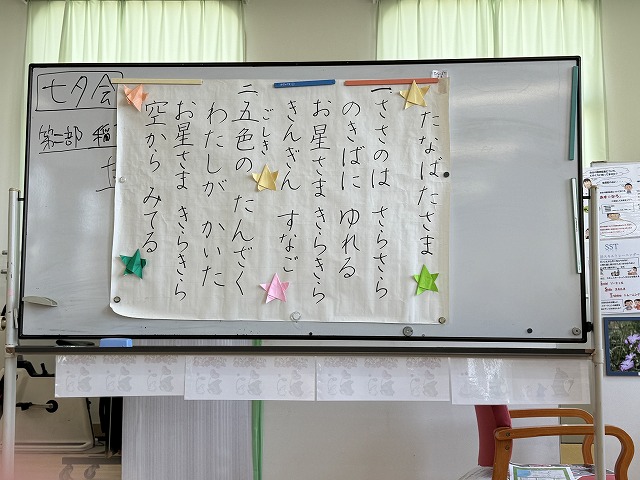 七夕会
第一部
たなばたさま
一ささのは さらさら
のきばに ゆれる
お星さま きらきら
きんぎん すなご
ごしき
二五色の たんざく
わたしが かいた
お星さま きらきら
空から みてる
SST